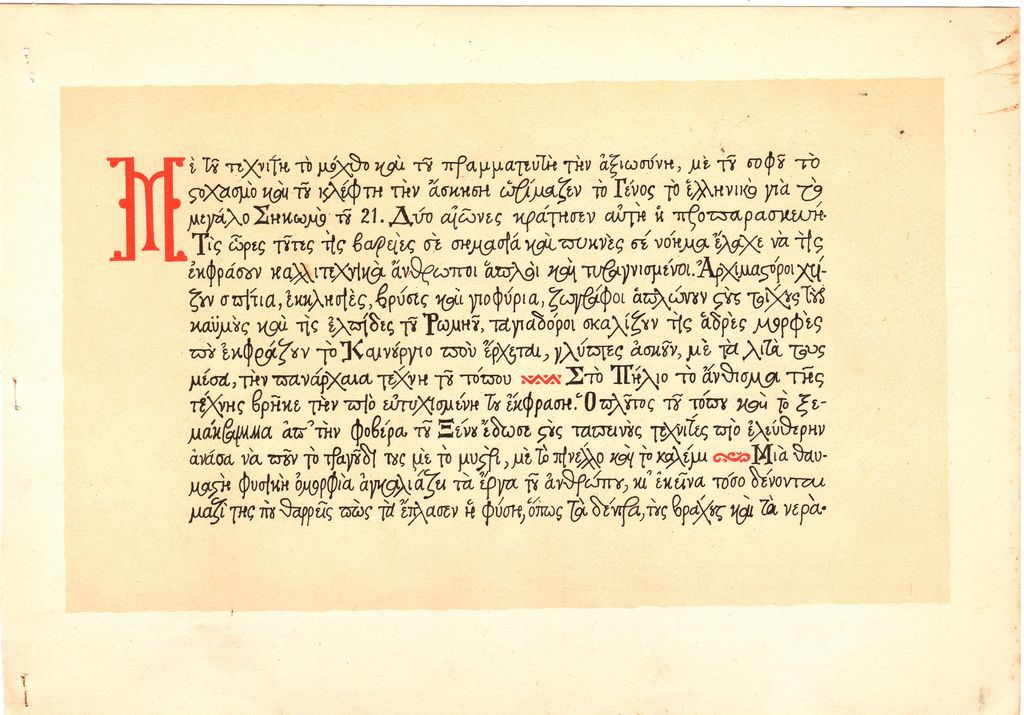 Μὲ τοῦ τεχνίτη τὸ μόχθο καὶ τοῦ πραμματευτῆ τὴν ἀξιωσύνη, μὲ τοῦ σοφοῦ τὸ
στοχασμὸ καὶ τοῦ κλέφτη τὴν ἄσκηση ὡρίμαζεν τὸ Γένος τὸ ἑλληνικὸ γιὰ τὸ
μεγάλο Σηκωμὸ τοῦ 21. Δύο αἰῶνες κράτησεν αὐτὴ ἡ προπαρασκευή.
Τὶς ὧρες τοῦτες τὶς βαρειὲς σὲ σημασία καὶ πυκνὲς σὲ νόημα ἔλαχε νὰ τὶς
ἐκφράσουν καλλιτεχνικὰ ἄνθρωποι ἁπλοὶ καὶ τυραγνισμένοι. Ἀρχιμαστόροι χτί-
ζουν σπίτια, ἐκκλησιές, βρύσες καὶ γιοφύρια, ζωγράφοι ἁπλώνουν στοὺς τοίχους τοὺς
καϋμοὺς καὶ τὶς ἐλπίδες τοῦ Ρωμηοῦ, ταγιαδόροι σκαλίζουν τὶς ἁδρὲς μορφὲς
ποὺ ἐκφράζουν τὸ Καινούργιο ποὺ ἔρχεται, γλύπτες ἀσκοῦν, μὲ τὰ λιτὰ τους
μέσα, τὴν πανάρχαια τέχνη τοῦ τόπου Στὸ Πήλιο τὸ ἄνθισμα τῆς
τέχνης βρῆκε τὴν πιὸ εὐτυχισμένη του ἔκφραση. Ὁ πλοῦτος τοῦ τόπου καὶ τὸ ξε-
μάκρυμμα ἀπ' τὴν φοβέρα τοῦ Ξένου ἔδωσε στοὺς ταπεινοὺς τεχνίτες πιὸ ἐλεύθερην
ἀνάσα νὰ ποῦν τὸ τραγοῦδι τους μὲ τὸ μυστρί, μὲ τὸ πινέλλο καὶ τὸ καλέμι Μιὰ θαυ-
μαστὴ φυσικὴ ὀμορφιὰ ἀγκαλιάζει τὰ ἔργα τοῦ ἀνθρώπου, κι' ἐκεῖνα τόσο δένονται
μαζί της ποὺ θαρρεῖς πὼς τὰ ἔπλασεν ἡ φύση, ὅπως τὰ δέντρα, τοὺς βράχους καὶ τὰ νερά.